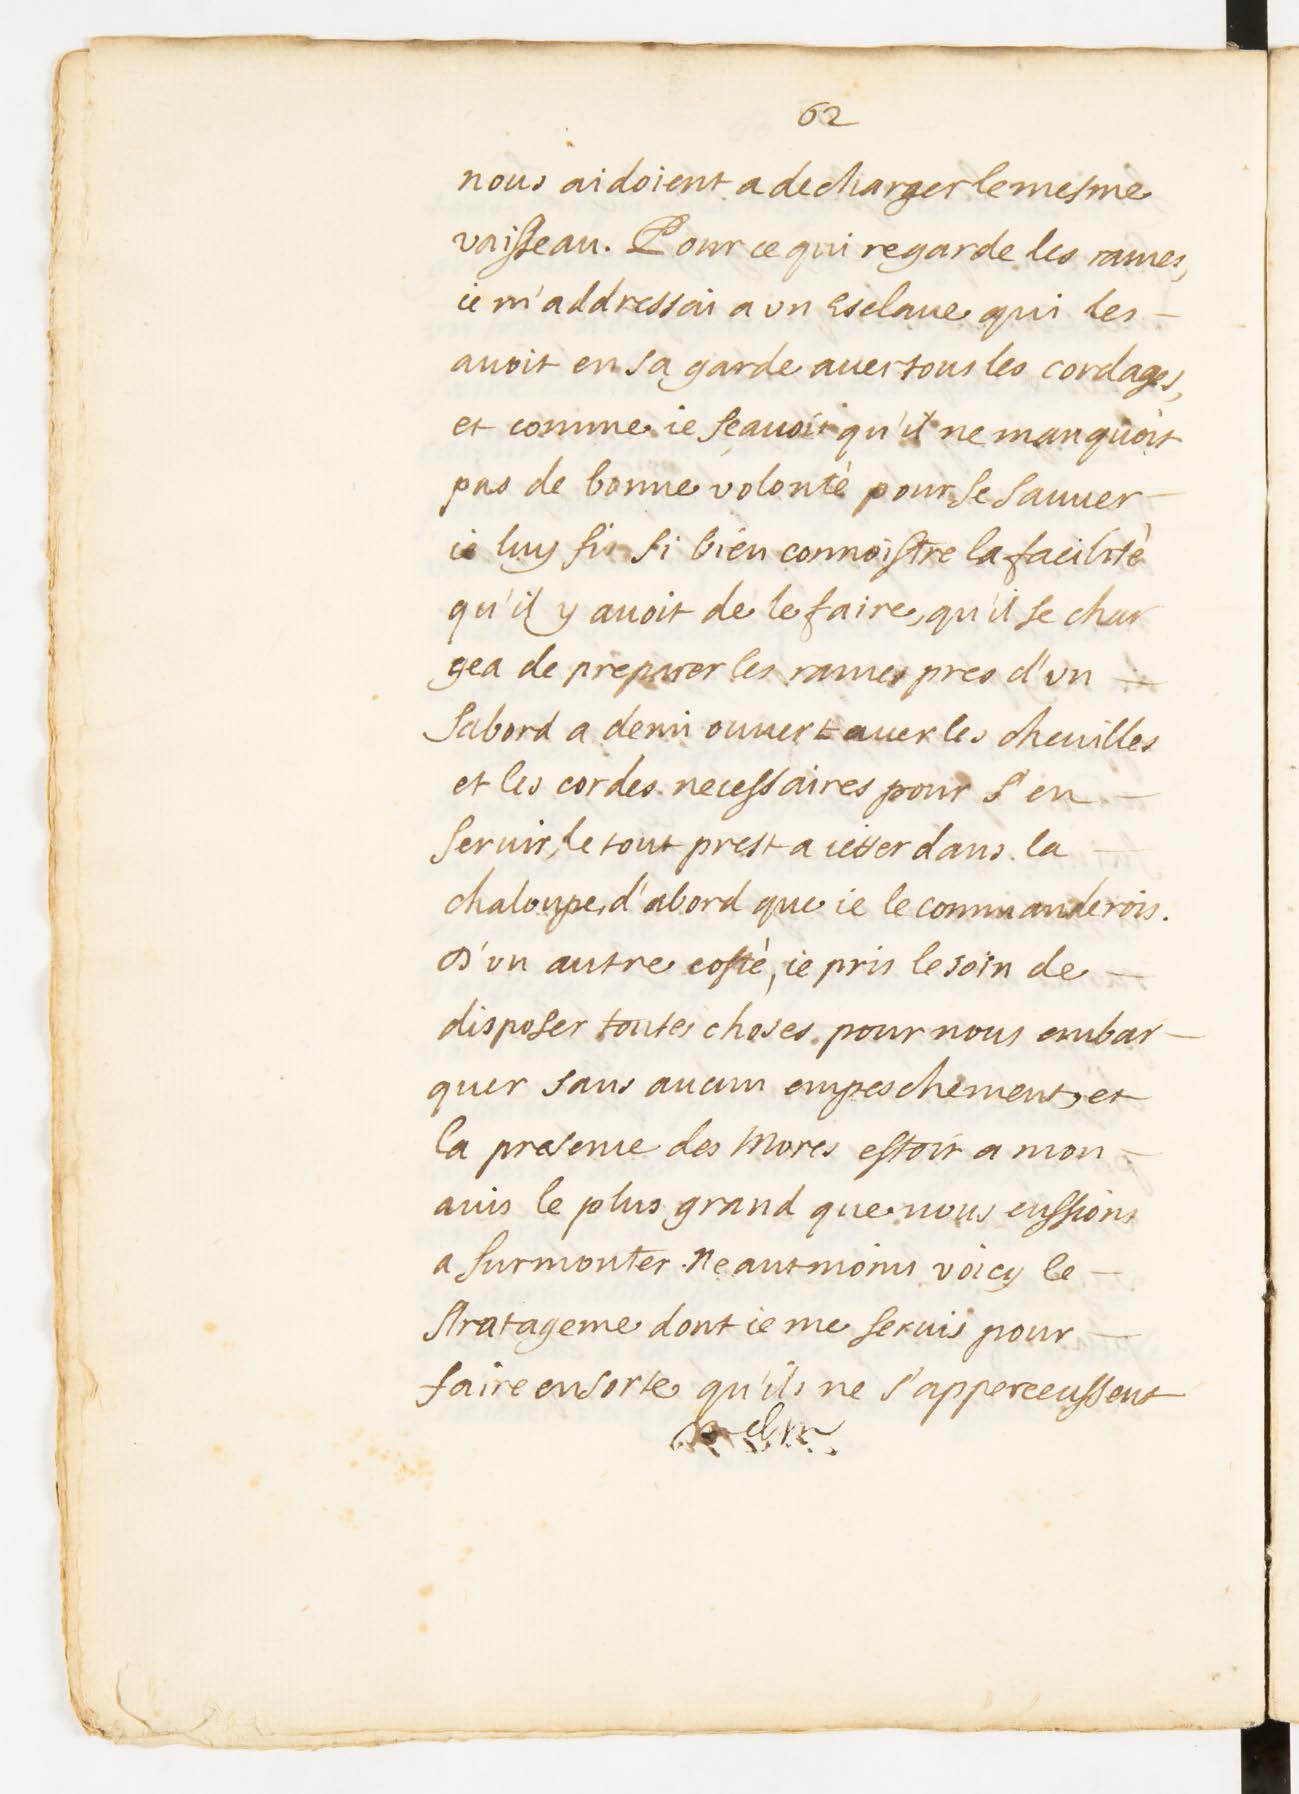 62
nous aidoient a decharger le mesme
vaisseau. Pour ce qui regarde les rames,
ie m'addressai a un Esclaue qui les
auoit en sa garde auec tous les cordages,
et comme ie sçauois qu'il ne manquoit
pas de bonne volonté pour se sauuer
ie luy fis si bien connoistre la facilité
qu'il y auoit de le faire, qu'il se char
gea de preparer les rames pres d'vn
sabord a demi ouuert auec les cheuilles
et les cordes necessaires pour s'en
seruir, le tout prest a ietter dans la
chaloupe, d'abord que ie le commanderois.
D'vn autre costé, ie pris le soin de
disposer toutes choses pour nous embar-
quer sans aucun empeschement, et
la presence des Mores estoit a mon
auis le plus grand que nous eussions
a surmonter. Neautmoins voicy le
stratageme dont ie me seruis pour
faire ensorte qu'ils ne s'apperceussent